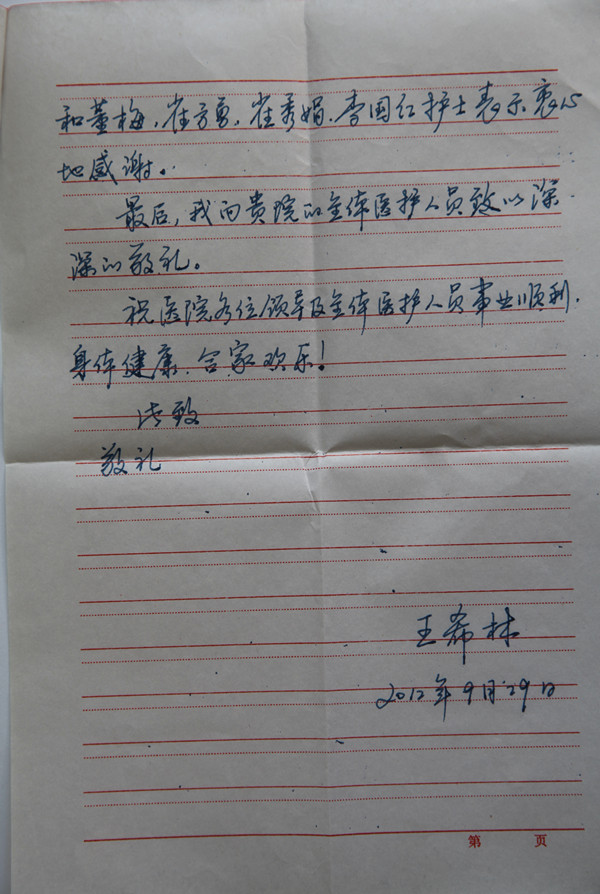 和董梅、崔方勇、崔秀娟、李国红护士表示衷心
地感谢。
最后，我向贵院的全体医护人员致以深
深的敬礼。
祝医院各位领导及全体医护人员事业顺利、
身体健康、合家欢乐！
此致
敬礼
王希林
2012年9月29日
第 页